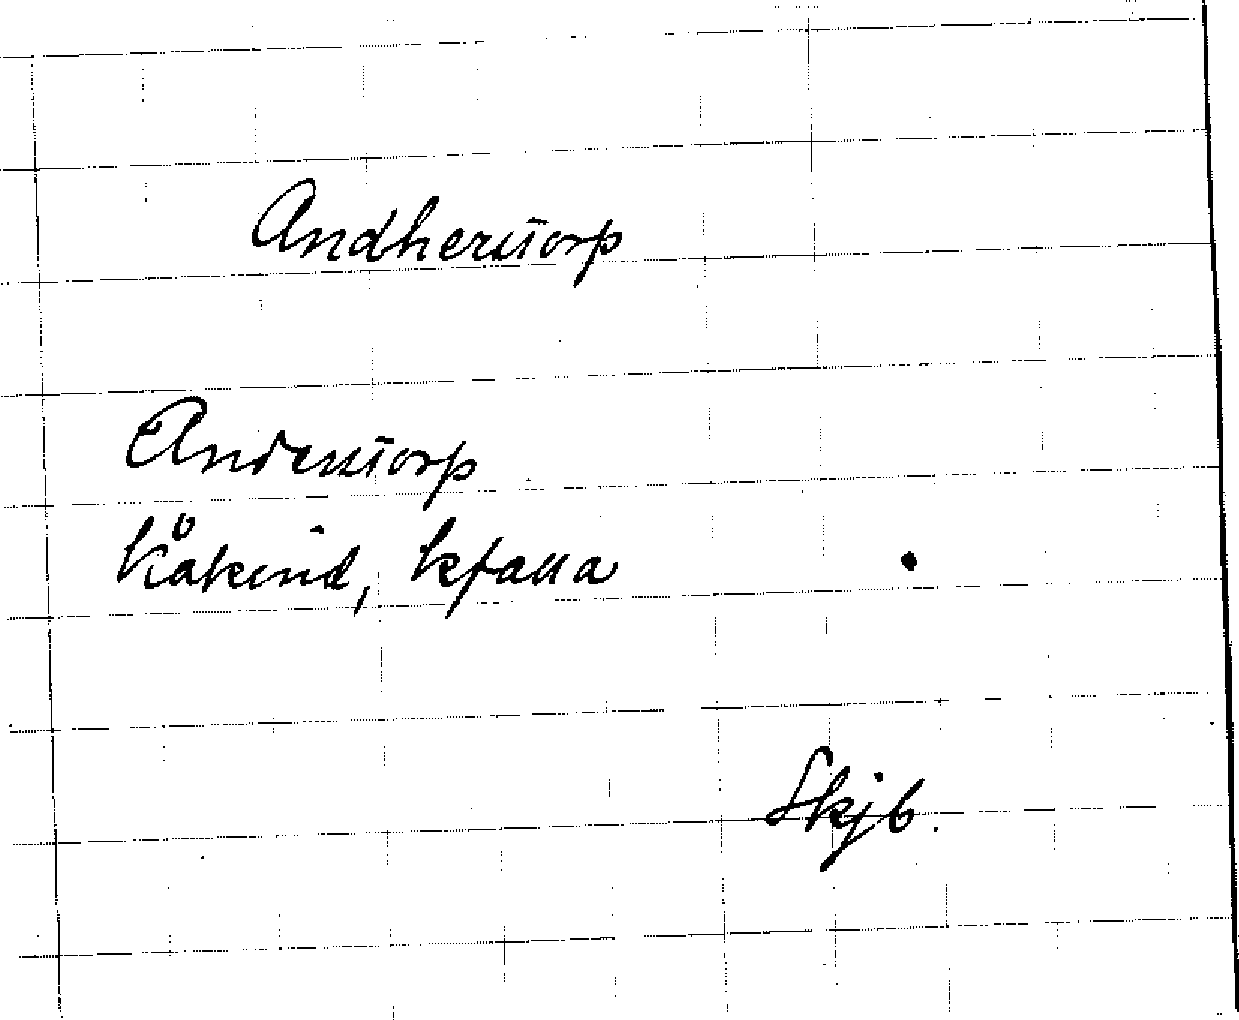 Andherstorp
Anderstorp
Kåkind, Kfalla
Skjb.